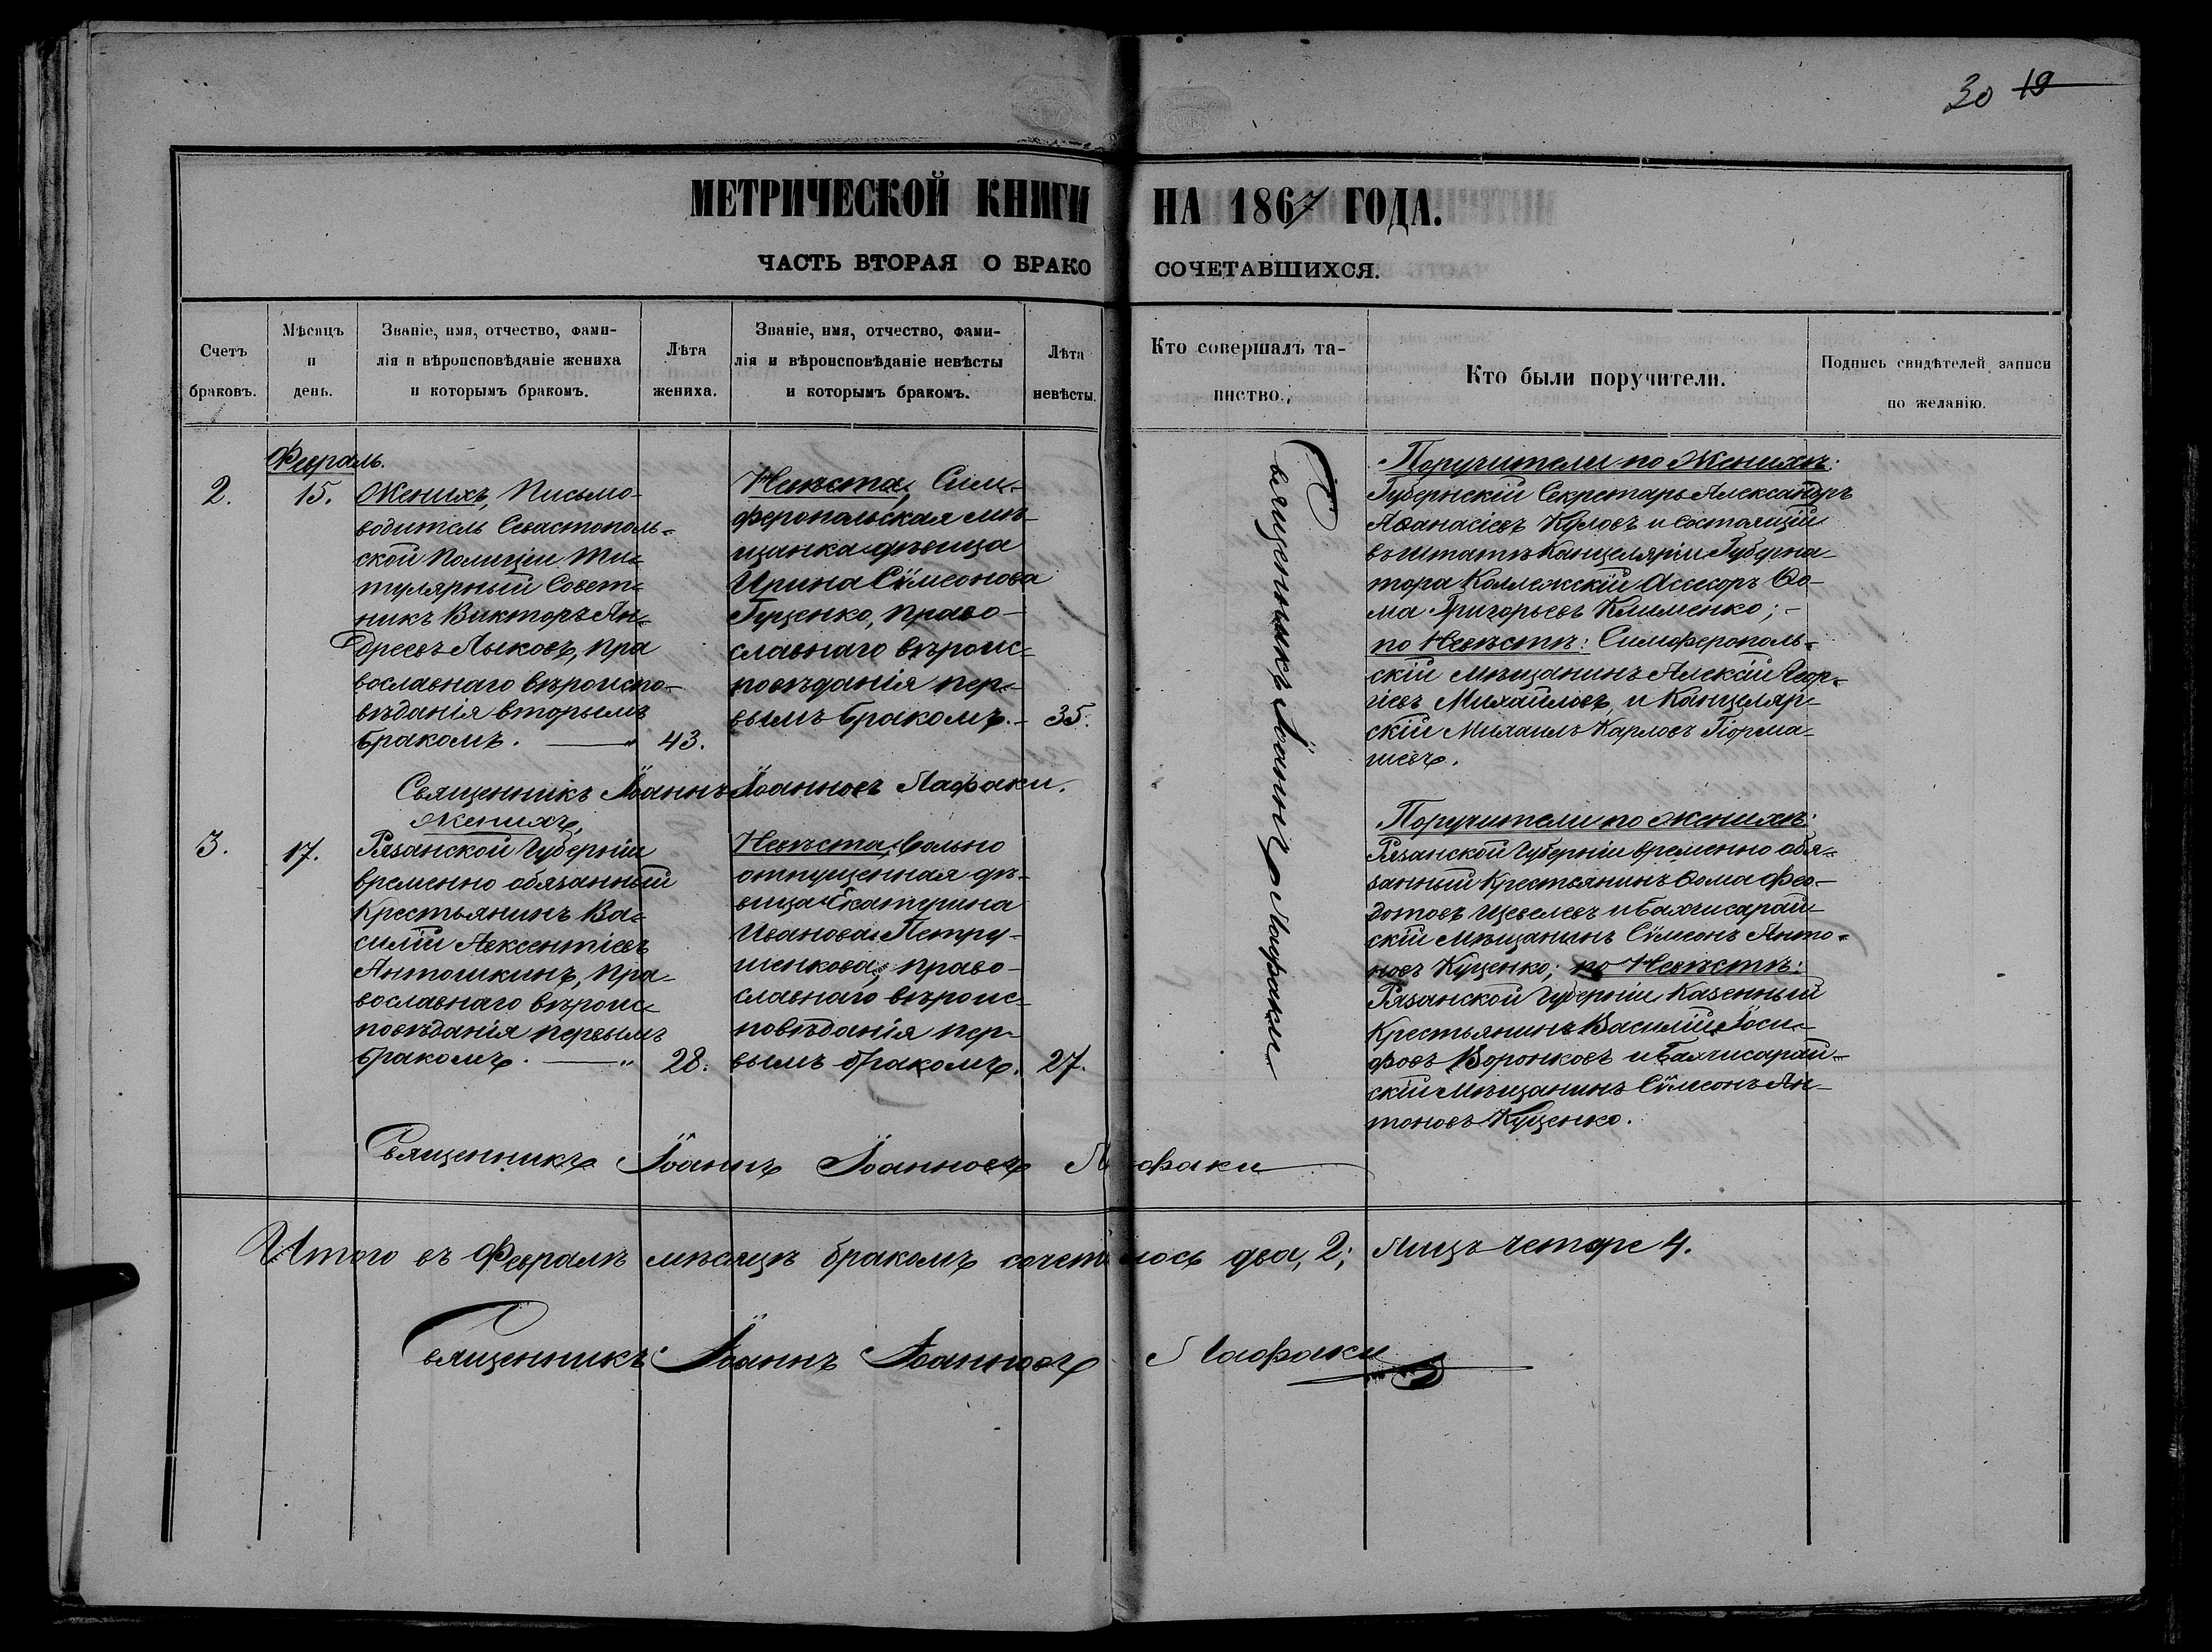 30 19
МЕТРИЧЕСКОЙ КНИГИ НА 1867 ГОДА.
ЧАСТЬ ВТОРАЯ О БРАКОСОЧЕТАВШИХСЯ.
Счетъ браковъ.
Мѣсяцъ и день.
Званіе, имя, отчество, фами-
лія и вѣроисповѣданіе жениха
и которымъ бракомъ.
Лѣта жениха.
Званіе, имя, отчество, фами-
лія и вѣроисповѣданіе невѣсты
и которымъ бракомъ.
Лѣта невѣсты.
Кто совершалъ та-
инство.
Кто были поручители.
Подпись свидѣтелей записи
по желанію.
Февраль.
2.
15.
Женихъ, Письмо-
водитель Севастополь-
ской Полиціи Ти-
тулярный Совет-
никъ Викторъ Ан-
дреевъ Лыковъ, пра
вославнаго вѣроиспо-
вѣданія вторымъ
бракомъ.
43.
Невѣста, Сим-
феропольская мѣ-
щанка дѣвица
Ирина Сѵмеонова
Гущенко, право-
славнаго вѣроис-
повѣданія пер-
вымъ бракомъ.
35.
Священникъ Іоаннъ Лафаки
Поручители по Женихѣ:
Губернскій Секретарь Александръ
Аѳанасіевъ Куловъ и состоящій
въ штатѣ Канцеляріи Губерна-
тора Коллежскій Ассесоръ Ѳо-
ма Григорьевъ Клименко; -
по Невѣстѣ: Симферополь-
скій мѣщанинъ Алексій Геор-
гіевъ Михайловъ, и Канцеляр-
скій Михаилъ Карловъ
Священникъ Іоаннъ Іоанновъ Лафаки.
3.
17.
Женихъ,
Рязанской Губерніи
временно обязанный
Крестьянинъ Ва-
силій Авксентіевъ
Антошкинъ, пра-
вославнаго вѣроис-
повѣданія первымъ
бракомъ.
28.
Невѣста, вольно
отпущенная дѣ-
вица Екатерина
Иванова Петру-
шенкова, право-
славнаго вѣроис-
повѣданія пер-
вымъ бракомъ.
27.
Поручители по женихѣ:
Рязанской Губерніи временно обя-
занный Крестьянинъ Ѳома Фео-
дотовъ Щевелевъ и Бахчисарай-
скій мѣщанинъ Сѵмеонъ Анто-
новъ Куценко; по Невѣстѣ:
Рязанской Губерніи Казенный
Крестьянинъ Василій Іоси-
фовъ Воронковъ и Бахчисарай-
скій мѣщанинъ Сѵмеонъ Ан-
тоновъ Куценко.
Священникъ Іоаннъ Іоанновъ Лафаки
Итого въ Февралѣ мѣсяцѣ бракомъ сочеталось два, 2; Лицъ четыре 4.
Священникъ Іоаннъ Іоанновъ Лафаки